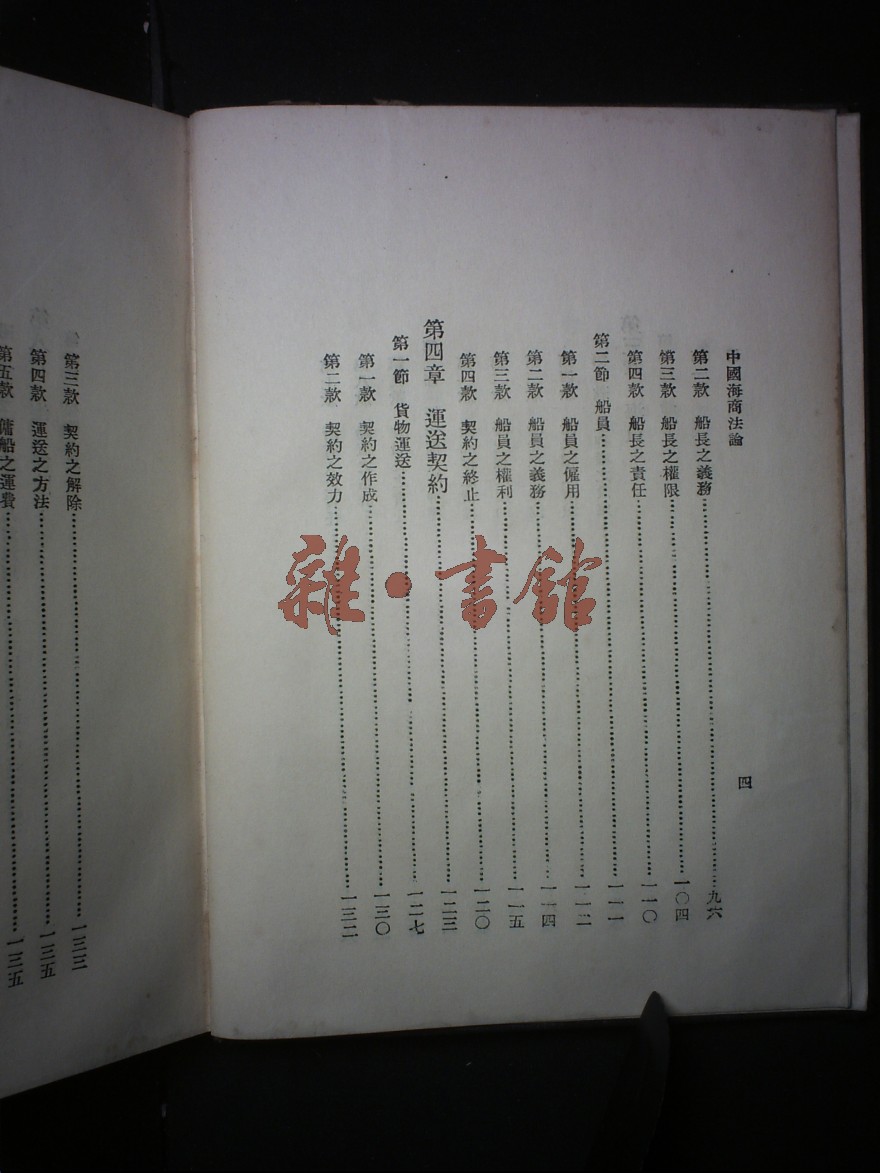 中國海商法論
四
第二款 船長之義務……九六
第三款 船長之權限……一〇四
第四款 船長之責任……一一〇
第二節 船員……一一一
第一款 船員之僱用……一一二
第二款 船員之義務……一一四
第三款 船員之權利……一一五
第四款 契約之終止……一二〇
第四章 運送契約……一二三
第一節 貨物運送……一二七
第一款 契約之作成……一三〇
第二款 契約之效力……一三二
第三款 契約之解除……一三三
第四款 運送之方法……一三五
第五款 傭船之運費……一三五
雜·書館